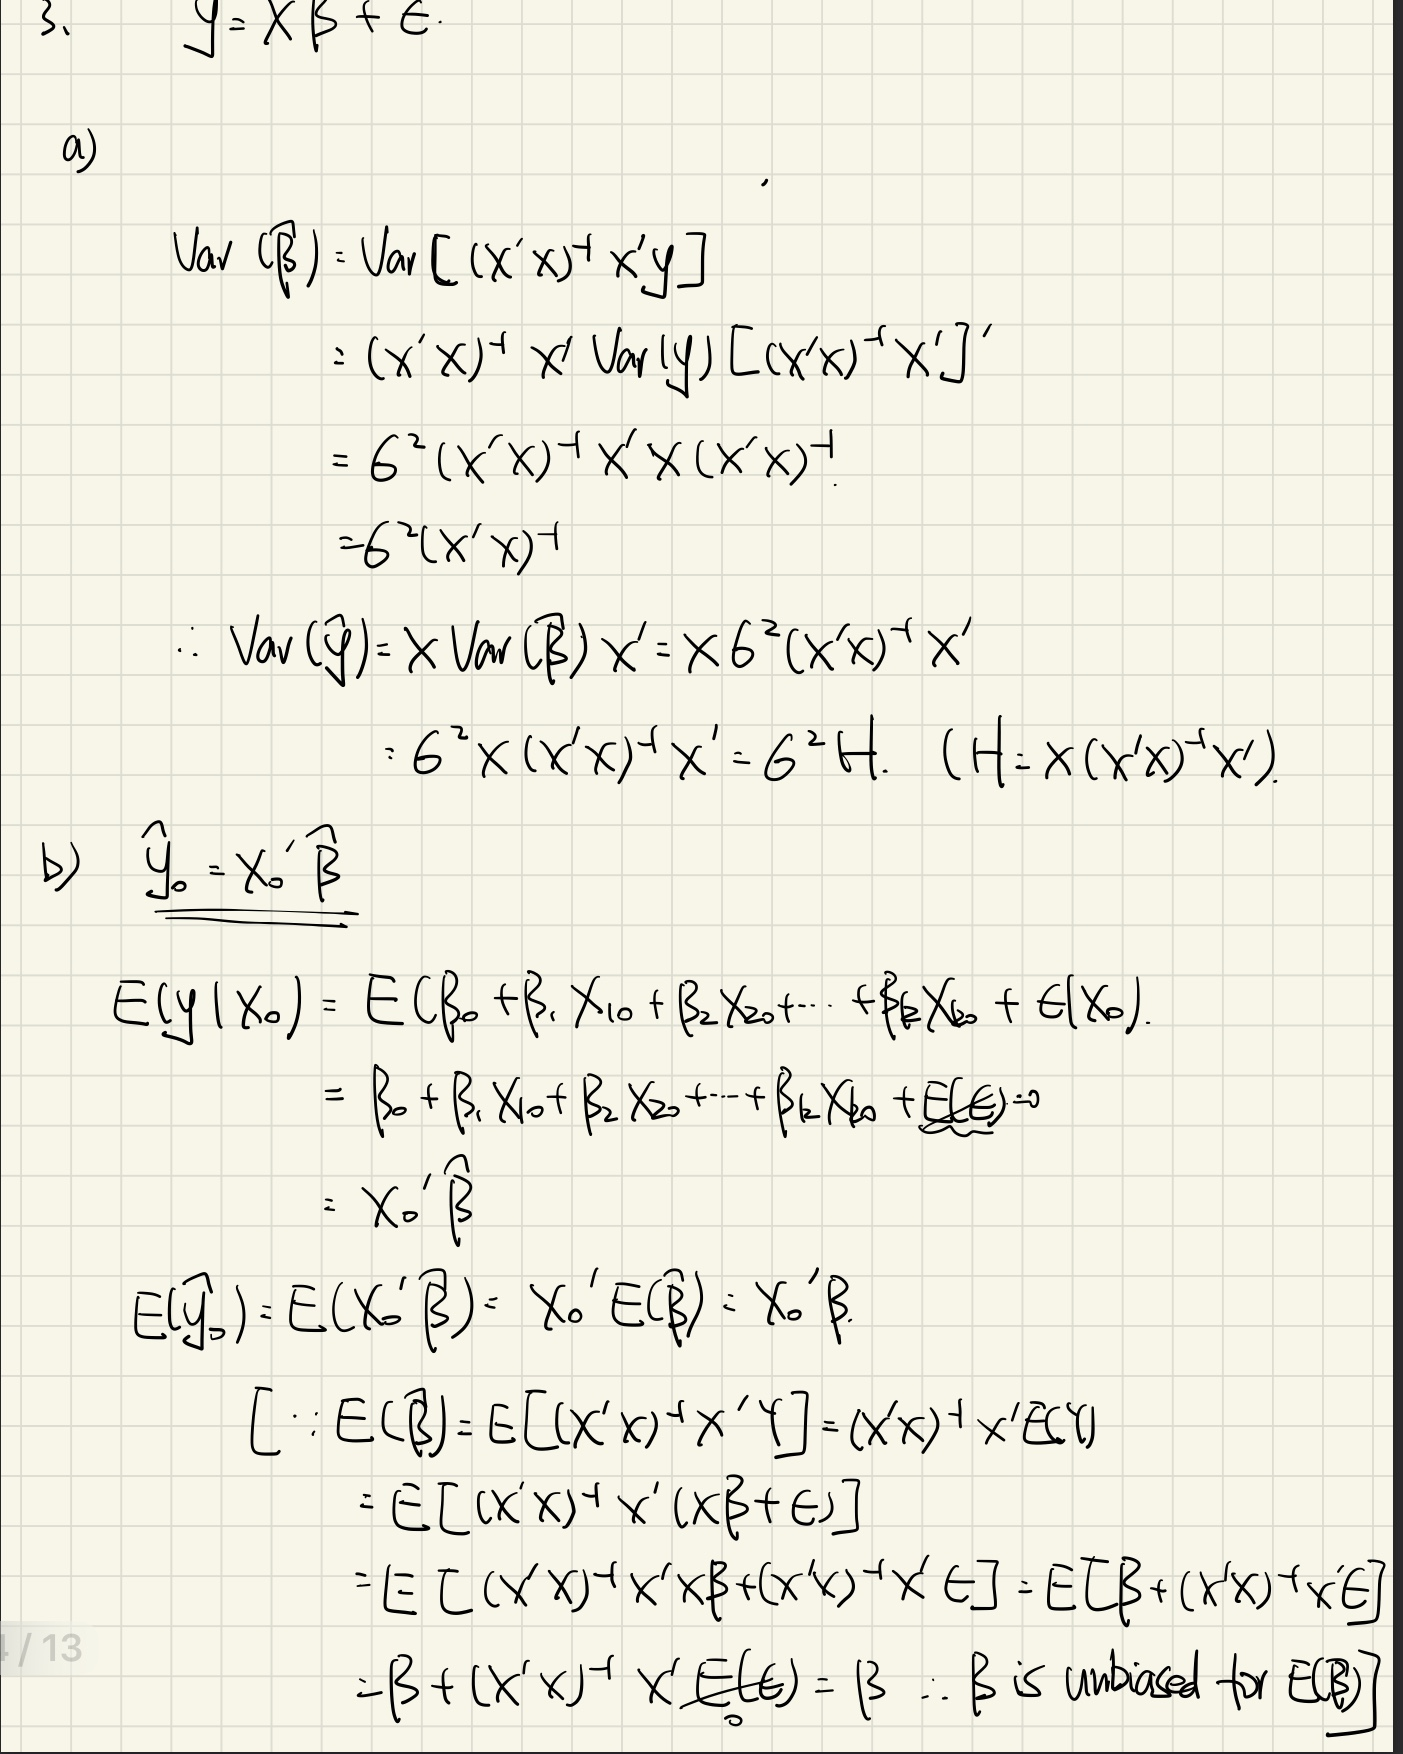 3. y = Xβ + ε.
a)
Var(β̂) = Var[(X'X)⁻¹X'y]
= (X'X)⁻¹ X' Var(y) [(X'X)⁻¹X']'
= σ²(X'X)⁻¹X'X(X'X)⁻¹.
= σ²(X'X)⁻¹
∴ Var(ŷ) = X Var(β̂) X' = X σ²(X'X)⁻¹X'
= σ²X(X'X)⁻¹X' = σ²H. (H = X(X'X)⁻¹X').
b) ŷ₀ = X₀'β̂
E(y|X₀) = E(β₀ + β₁X₁₀ + β₂X₂₀ + ⋯ + βₖXₖ₀ + ε|X₀).
= β₀ + β₁X₁₀ + β₂X₂₀ + ⋯ + βₖXₖ₀ + E(ε)=0
= X₀'β̂
E(ŷ₀) = E(X₀'β̂) = X₀'E(β̂) = X₀'β.
[∵ E(β̂) = E[(X'X)⁻¹X'Y] = (X'X)⁻¹X'E(Y)
= E[(X'X)⁻¹X'(Xβ+ε)]
= E[(X'X)⁻¹X'Xβ+(X'X)⁻¹X'ε] = E[β+(X'X)⁻¹X'ε]
= β + (X'X)⁻¹X'E(ε) = β ∴ β is unbiased for E(β̂)]
0
4/13